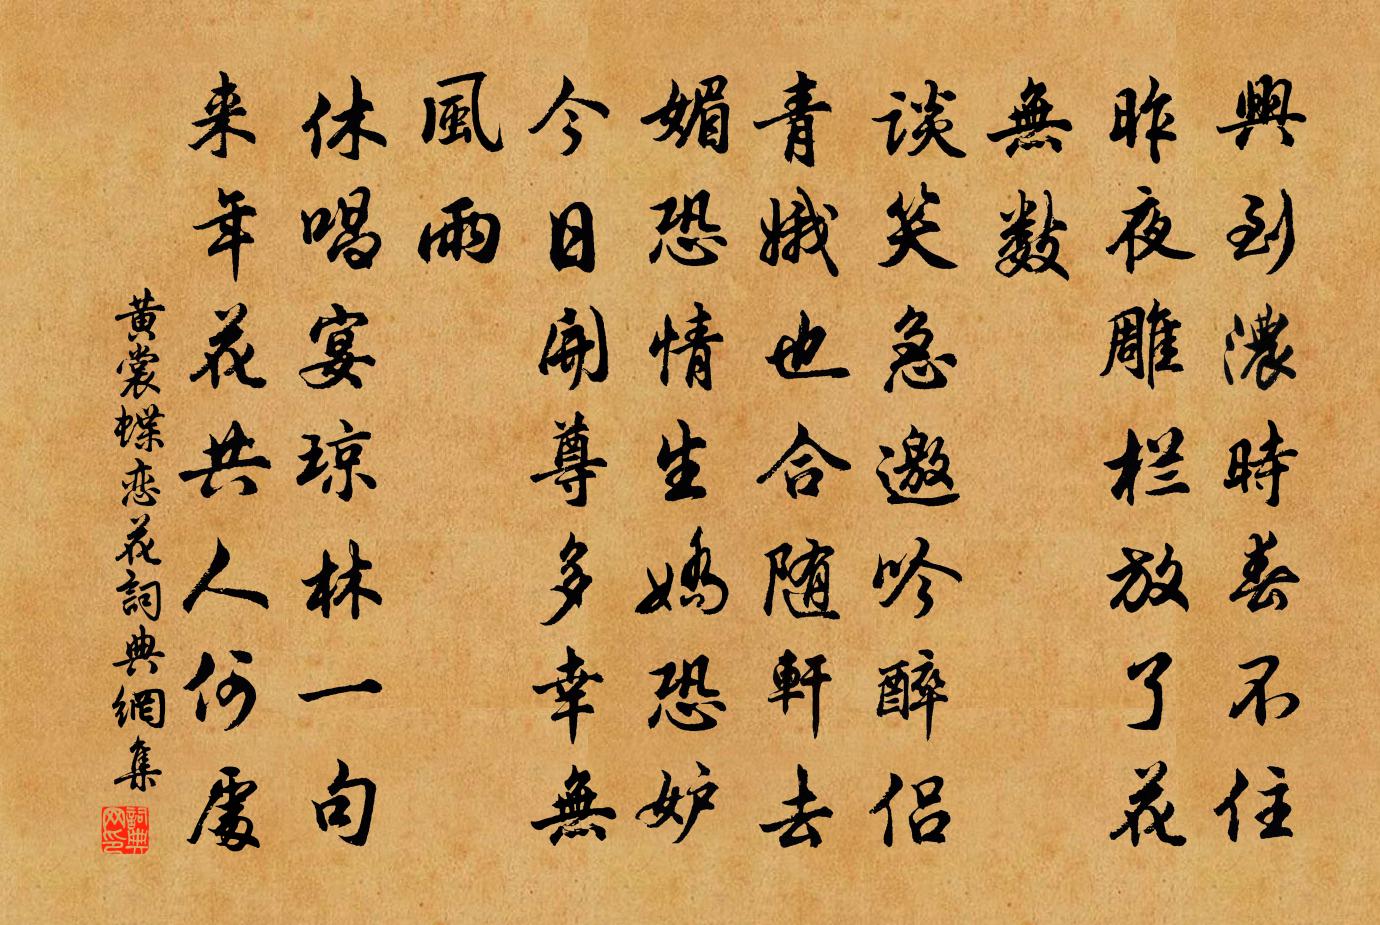 興到濃時春不住
昨夜雕栏放了花
無數
談笑急邀吟醉侣
青娥也合随軒去
媚恐情生嬌恐妒
今日開尊多幸無
風雨
休唱宴琼林一句
来年花共人何處
黄裳蝶恋花詞典網集
詞典
网印